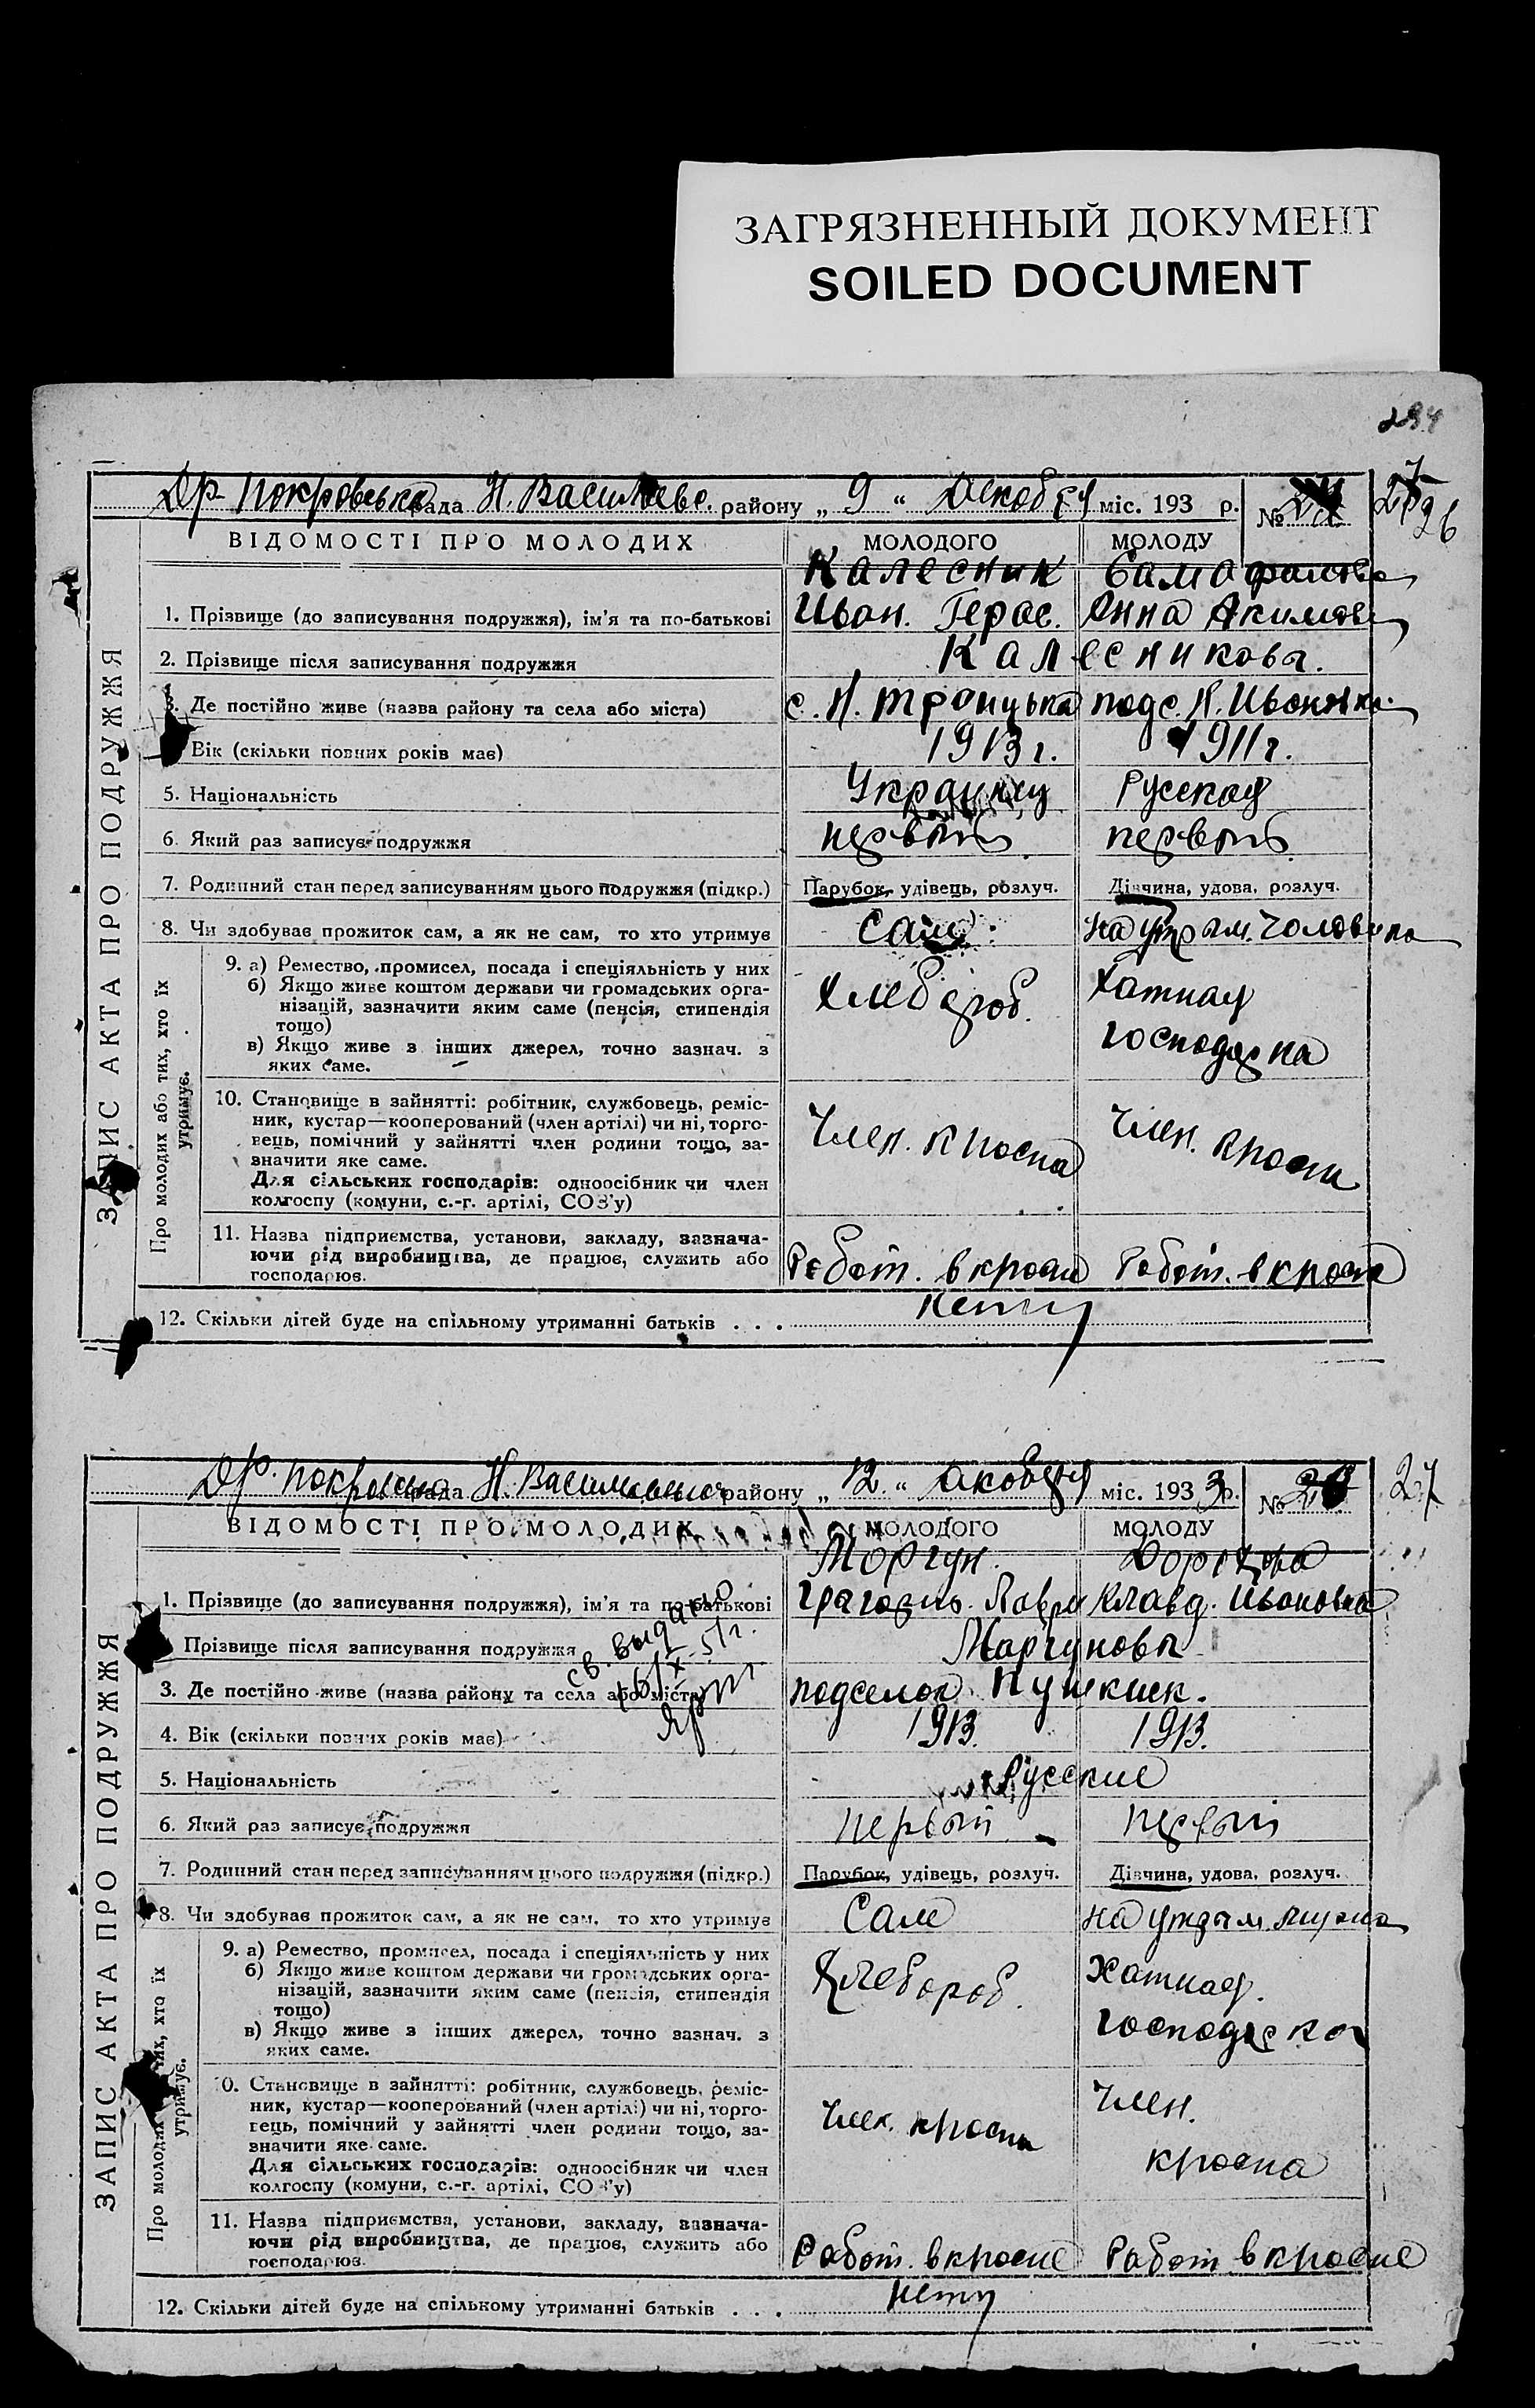 ЗАГРЯЗНЕННЫЙ ДОКУМЕНТ
SOILED DOCUMENT
234
Др. Покровська рада Н. Васильевс. району „ 9 “ міс. 193 р. №
26
ЗАПИС АКТА ПРО ПОДРУЖЖЯ
ВІДОМОСТІ ПРО МОЛОДИХ МОЛОДОГО МОЛОДУ
Калесник
1. Прізвище (до записування подружжя), ім'я та по-батькові Иван. Герас. Анна Акимов
2. Прізвище після записування подружжя Калесниковы.
3. Де постійно живе (назва району та села або міста) с. Н. Троицька
Вік (скільки повних років має) 1913 г. 1911 г.
5. Національність Русская
6. Який раз записує подружжя первый первый
7. Родинний стан перед записуванням цього подружжя (підкр.) Парубок, удівець, розлуч. Дівчина, удова, розлуч.
8. Чи здобував прожиток сам, а як не сам, то хто утримує Сам на утрым. Чоловика
Про молодих або тих, хто їх утримує.
9. а) Ремество, промисел, посада і спеціяльність у них
б) Якщо живе коштом держави чи громадських орга-
нізацій, зазначити яким саме (пенсія, стипендія
тощо)
в) Якщо живе з інших джерел, точно зазнач. з
яких саме.
Хлебороб. Хатная
господарка
10. Становище в зайнятті: робітник, службовець, реміс-
ник, кустар—кооперований (член артілі) чи ні, торго-
вець, помічний у зайнятті член родини тощо, за-
значити яке саме.
Для сільських господарів: одноосібник чи член
колгоспу (комуни, с.-г. артілі, СОЗ'у)
Член. Член.
11. Назва підприємства, установи, закладу, зазнача-
ючи рід виробництва, де працює, служить або
господарює.
Работ. в Работ. в
12. Скільки дітей буде на спільному утриманні батьків . . . нету
Др. рада Н. району „ 12 “ міс. 1933 р. №
27
ЗАПИС АКТА ПРО ПОДРУЖЖЯ
ВІДОМОСТІ ПРО МОЛОДИХ МОЛОДОГО МОЛОДУ
Моргун
1. Прізвище (до записування подружжя), ім'я та по-батькові Клавд. Ивановна
Прізвище після записування подружжя Маргуновы
св. выдано
3. Де постійно живе (назва району та села або міста) подселок Пушкинск.
4. Вік (скільки повних років має) 1913. 1913.
5. Національність Русские
6. Який раз записує подружжя первый первый
7. Родинний стан перед записуванням цього подружжя (підкр.) Парубок, удівець, розлуч. Дівчина, удова, розлуч.
8. Чи здобував прожиток сам, а як не сам, то хто утримує Сам на утрым.
Про молодих хто їх утримує.
9. а) Ремество, промисел, посада і спеціяльність у них
б) Якщо живе коштом держави чи громадських орга-
нізацій, зазначити яким саме (пенсія, стипендія
тощо)
в) Якщо живе з інших джерел, точно зазнач. з
яких саме.
Хлебороб. Хатная.
господарка
0. Становище в зайнятті: робітник, службовець, реміс-
ник, кустар—кооперований (член артілі) чи ні, торго-
вець, помічний у зайнятті член родини тощо, за-
значити яке саме.
Для сільських господарів: одноосібник чи член
колгоспу (комуни, с.-г. артілі, СОЗ'у)
Член. Член.
11. Назва підприємства, установи, закладу, зазнача-
ючи рід виробництва, де працює, служить або
господарює.
Работ. в Работ в
12. Скільки дітей буде на спільному утриманні батьків . . . нету